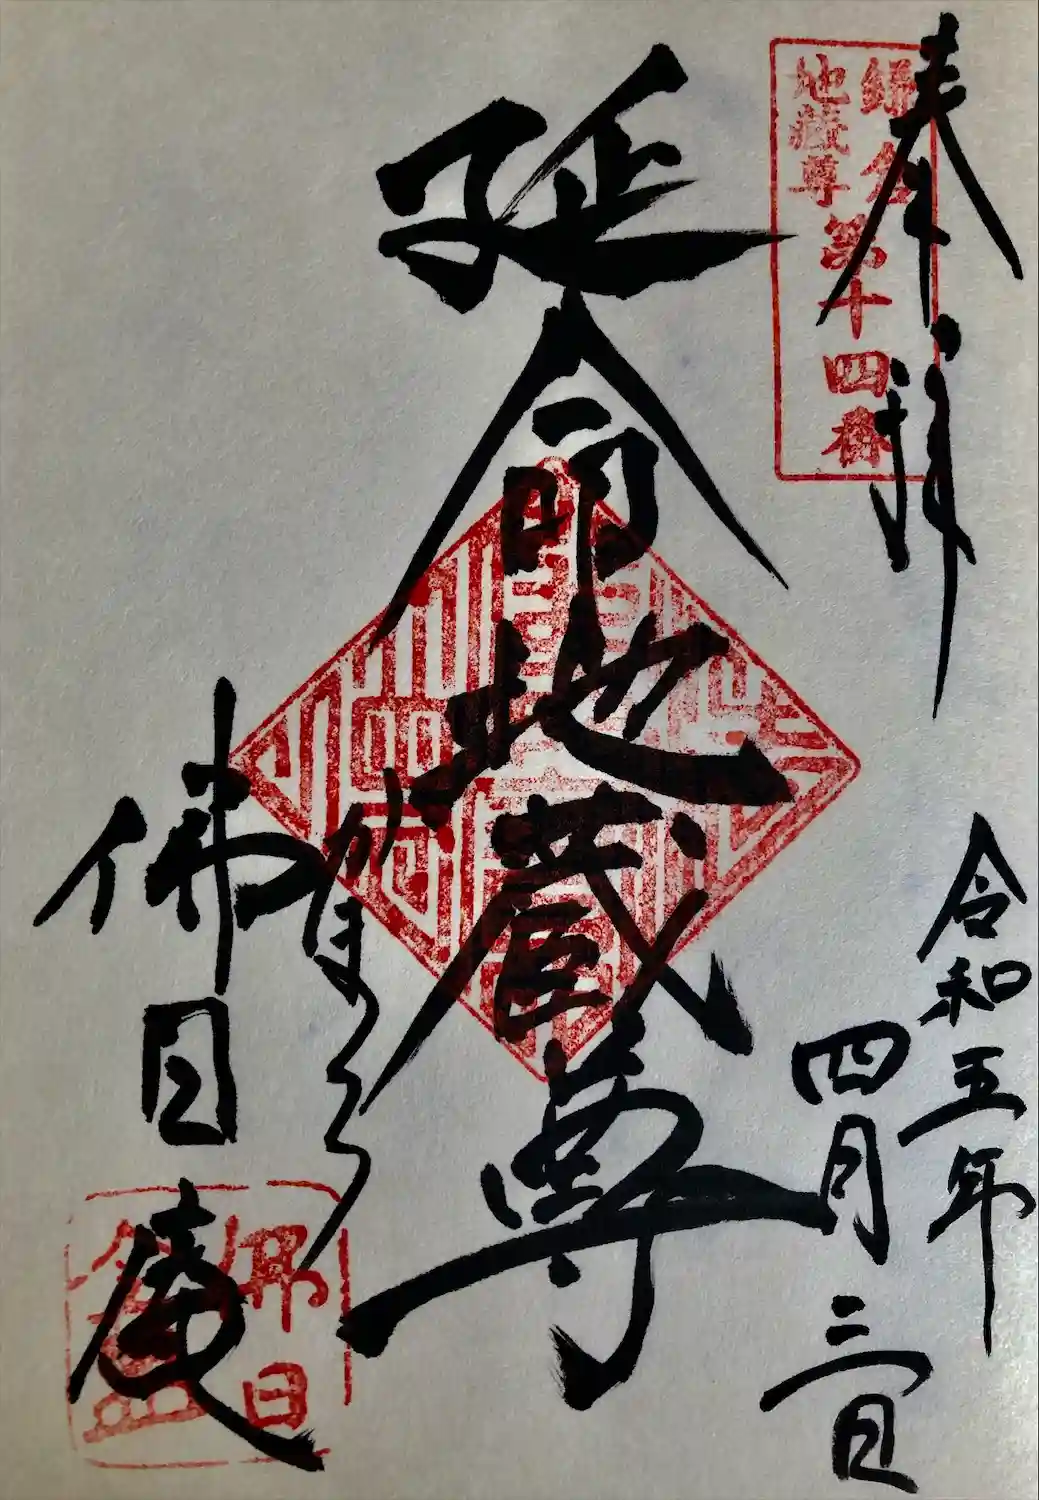 奉拝
鎌倉
地蔵尊
第十四番
令和五年
四月三日
延命地蔵尊
佛日庵
佛日